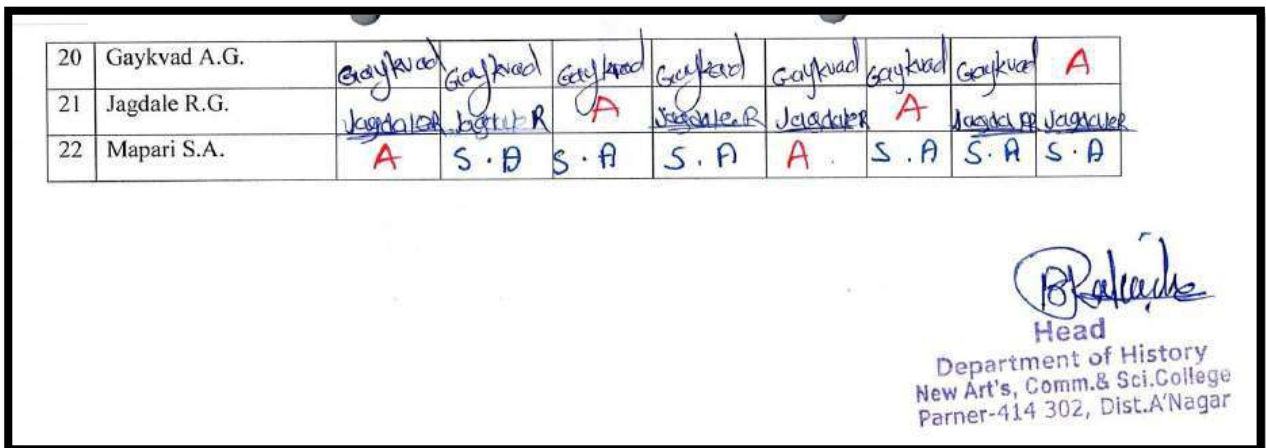 20 Gaykvad A.G. Gaykvad Gaykvad Gaykvad Gaykvad Gaykvad Gaykvad Gaykvad A
21 Jagdale R.G. Jagdale R A Jagdale.R Jagdale R A Jagdale R
22 Mapari S.A. A S.A S.A S.A A. S.A S.A S.A
Head
Department of History
New Art's, Comm.& Sci.College
Parner-414 302, Dist.A'Nagar